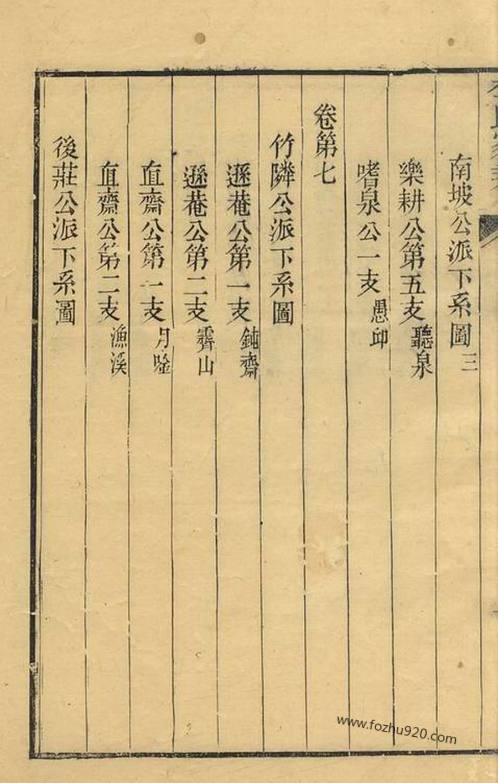 南坡公派下系圖三
樂耕公第五支聽泉
嗜泉公一支愚邱
卷第七
竹隣公派下系圖
遜菴公第一支鈍齋
遜菴公第二支霽山
直齋公第一支月
直齋公第二支漁溪
後莊公派下系圖
www.fozhu920.com